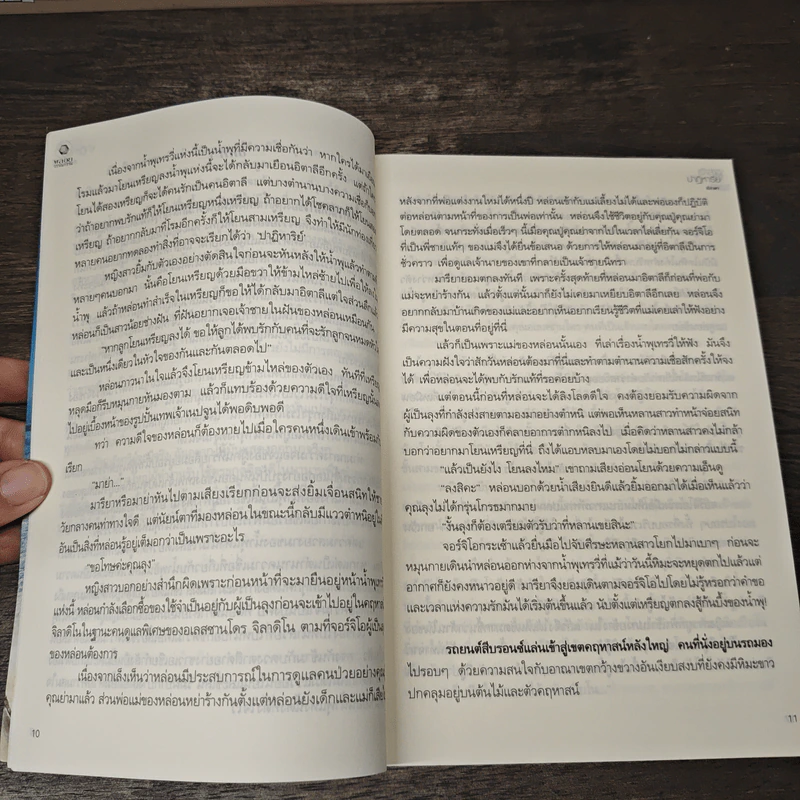 เนื่องจากน้ำพุเทรวี่แห่งนี้เป็นน้ำพุที่มีความเชื่อกันว่า หากใครได้มาเยือน
โรมแล้วมาโยนเหรียญลงน้ำพุแห่งนี้จะได้กลับมาเยือนอิตาลีอีกครั้ง แต่ถ้า
โยนได้สองเหรียญก็จะได้คนรักเป็นคนอิตาลี แต่บางตำนานบางความเชื่อก็
ถ้าอยากพบรักแท้ก็ให้โยนเหรียญหนึ่งเหรียญ ถ้าอยากได้โชคลาภก็ให้โยน
เหรียญ ถ้าอยากกลับมาโรมอีกครั้งก็ให้โยนสามเหรียญ จึงทำให้มีนักท่องเที่ยว
หลายคนอยากทดลองทำสิ่งที่อาจจะเรียกได้ว่า 'ปาฏิหาริย์'
หญิงสาวยิ้มกับตัวเองอย่างตัดสินใจก่อนจะหันหลังให้น้ำพุแล้วทำตาม
หลายๆคนบอกมา นั่นคือโยนเหรียญด้วยมือขวาให้ข้ามไหล่ซ้ายไปเพื่อให้ตก
น้ำพุ แล้วถ้าหล่อนทำสำเร็จในเหรียญก็ขอให้ได้กลับมาอิตาลีแต่ใจส่วนลึก
หล่อนก็เป็นสาวน้อยช่างฝัน ที่ฝันอยากเจอเจ้าชายในฝันของหล่อนเหมือนกัน
"หากลูกโยนเหรียญลงได้ ขอให้ลูกได้พบรักกับคนที่จะรักลูกจนหมดหัวใจ
และเป็นหนึ่งเดียวในหัวใจของกันและกันตลอดไป"
หล่อนภาวนาในใจแล้วจึงโยนเหรียญข้ามไหล่ของตัวเอง ทันทีที่เหรียญ
หลุดมือก็รีบหมุนกายหันมองตาม แล้วก็แทบร้องด้วยความดีใจที่เหรียญนั้น
ไปอยู่เบื้องหน้าของรูปปั้นเทพเจ้าเนปจูนได้พอดิบพอดี
ทว่า ความดีใจของหล่อนก็ต้องหายไปเมื่อใครคนหนึ่งเดินเข้าพร้อม
เรียก
"มาย่า..."
มารียาหรือมาย่าหันไปตามเสียงเรียกก่อนจะส่งยิ้มเจื่อนสนิทให้ชาย
วัยกลางคนท่าทางใจดี แต่นัยน์ตาที่มองหล่อนในขณะนี้กลับมีแววตำหนิอยู่
อันเป็นสิ่งที่หล่อนรู้อยู่เต็มอกว่าเป็นเพราะอะไร
"ขอโทษค่ะคุณลุง"
หญิงสาวบอกอย่างสำนึกผิดเพราะก่อนหน้าที่จะมายืนอยู่หน้าน้ำพุเทรวี่
แห่งนี้ หล่อนกำลังเลือกซื้อของใช้จำเป็นอยู่กับผู้เป็นลุงก่อนจะเข้าไปอยู่ในคฤหาสน์
จิลาดิโนในฐานะคนดูแลพิเศษของอเลสซานโดร จิลาดิโน ตามที่จอร์จิโอผู้เป็นลุง
ของหล่อนต้องการ
เนื่องจากเล็งเห็นว่าหล่อนมีประสบการณ์ในการดูแลคนป่วยอย่างคุณ
คุณย่ามาแล้ว ส่วนพ่อแม่ของหล่อนหย่าร้างกันตั้งแต่หล่อนยังเด็กและแม่ก็เสีย
10
หลังจากที่พ่อแต่งงานใหม่ได้หนึ่งปี หล่อนเข้ากับแม่เลี้ยงไม่ได้และพ่อเองก็ปฏิบัติ
ต่อหล่อนตามหน้าที่ของการเป็นพ่อเท่านั้น หล่อนจึงใช้ชีวิตอยู่กับคุณปู่คุณย่ามา
โดยตลอด จนกระทั่งเมื่อเร็วๆ นี้เมื่อคุณปู่คุณย่าจากไปในเวลาไล่เลี่ยกัน จอร์จิโอ
ที่เป็นพี่ชายแท้ๆ ของแม่จึงได้ยื่นข้อเสนอ ด้วยการให้หล่อนมาอยู่ที่อิตาลีเป็นการ
ชั่วคราว เพื่อดูแลเจ้านายของเขาที่กลายเป็นเจ้าชายนิทรา
มารียายอมตกลงทันที เพราะครั้งสุดท้ายที่หล่อนมาอิตาลีก่อนที่พ่อกับ
แม่จะหย่าร้างกัน แล้วตั้งแต่นั้นมาก็ยังไม่เคยมาเหยียบอิตาลีอีกเลย หล่อนจึง
อยากกลับมาบ้านเกิดของแม่และอยากเห็นอยากเรียนรู้ชีวิตที่แม่เคยเล่าให้ฟังอย่าง
มีความสุขในตอนที่อยู่ที่นี่
แล้วก็เป็นเพราะแม่ของหล่อนนั้นเอง ที่เล่าเรื่องน้ำพุเทรวี่ให้ฟัง มันจึง
เป็นความฝังใจว่าสักวันหล่อนต้องมาที่นี่และทำตามตำนานความเชื่อสักครั้งให้จง
ได้ เพื่อหล่อนจะได้พบกับรักแท้ที่รอคอยบ้าง
แต่ตอนนี้ก่อนที่หล่อนจะได้ลิงโลดดีใจ คงต้องยอมรับความผิดจาก
ผู้เป็นลุงที่กำลังส่งสายตามองมาอย่างตำหนิ แต่พอเห็นหลานสาวทำหน้าจ๋อยสนิท
กับความผิดของตัวเองก็คลายอาการตำหนิลงไป เมื่อคิดว่าหลานสาวคงไม่กล้า
บอกว่าอยากมาโยนเหรียญที่นี่ ถึงได้แอบหลบมาเองโดยไม่บอกไม่กล่าวแบบนี้
"แล้วเป็นยังไง โยนลงไหม" เขาถามเสียงอ่อนโยนด้วยความเอ็นดู
"ลงสิคะ" หล่อนบอกด้วยน้ำเสียงยินดีแล้วยิ้มออกมาได้เมื่อเห็นแล้วว่า
คุณลุงไม่ได้กรุ่นโกรธมากมาย
"งั้นลุงก็ต้องเตรียมตัวรับว่าที่หลานเขยสินะ"
จอร์จิโอกระเซ้าแล้วยื่นมือไปจับศีรษะหลานสาวโยกไปมาเบาๆ ก่อนจะ
หมุนกายเดินนำหล่อนออกห่างจากน้ำพุเทรวี่ที่แม้ว่าวันนี้หิมะจะหยุดตกไปแล้วแต่
อากาศก็ยังคงหนาวอยู่ดี มารียาจึงยอมเดินตามจอร์จิโอไปโดยไม่รู้หรอกว่าคำขอ
และเวลาแห่งความรักมันได้เริ่มต้นขึ้นแล้ว นับตั้งแต่เหรียญตกลงสู่ก้นบึ้งของน้ำพุ!
รถยนต์สีบรอนซ์แล่นเข้าสู่เขตคฤหาสน์หลังใหญ่ คนที่นั่งอยู่บนรถมอง
ไปรอบๆ ด้วยความสนใจกับอาณาเขตกว้างขวางอันเงียบสงบที่ยังคงมีหิมะขาว
ปกคลุมอยู่บนต้นไม้และตัวคฤหาสน์
11